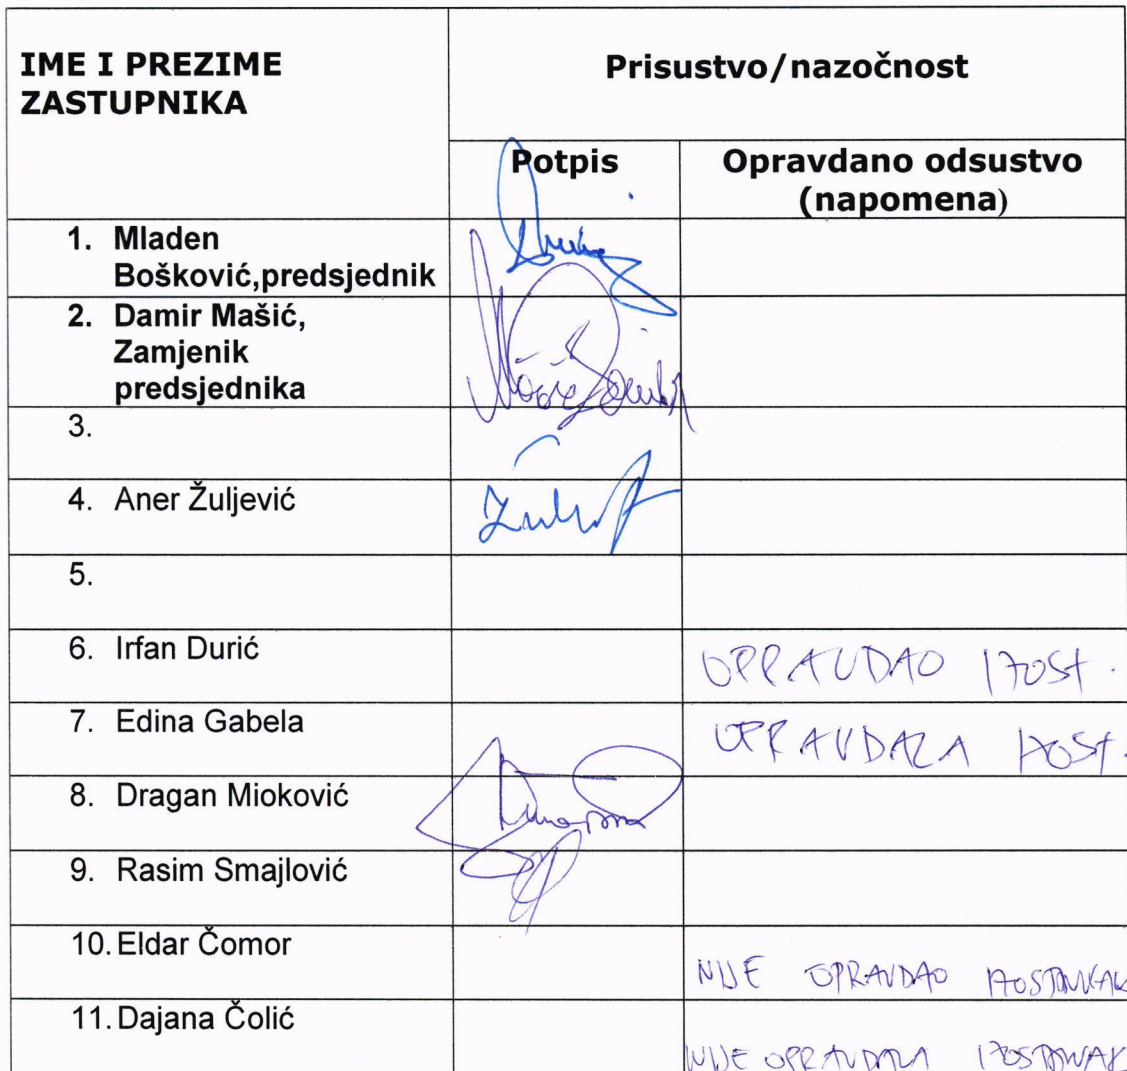 IME I PREZIME
ZASTUPNIKA
Prisustvo/nazočnost
Potpis
Opravdano odsustvo
(napomena)
1. Mladen
Bošković,predsjednik
2. Damir Mašić,
Zamjenik
predsjednika
3.
4. Aner Žuljević
5.
6. Irfan Durić
OPRAVDAO IZOST.
7. Edina Gabela
OPRAVDALA IZOST.
8. Dragan Mioković
9. Rasim Smajlović
10. Eldar Čomor
NIJE OPRAVDAO IZOSTANAK
11. Dajana Čolić
NIJE OPRAVDALA IZOSTANAK